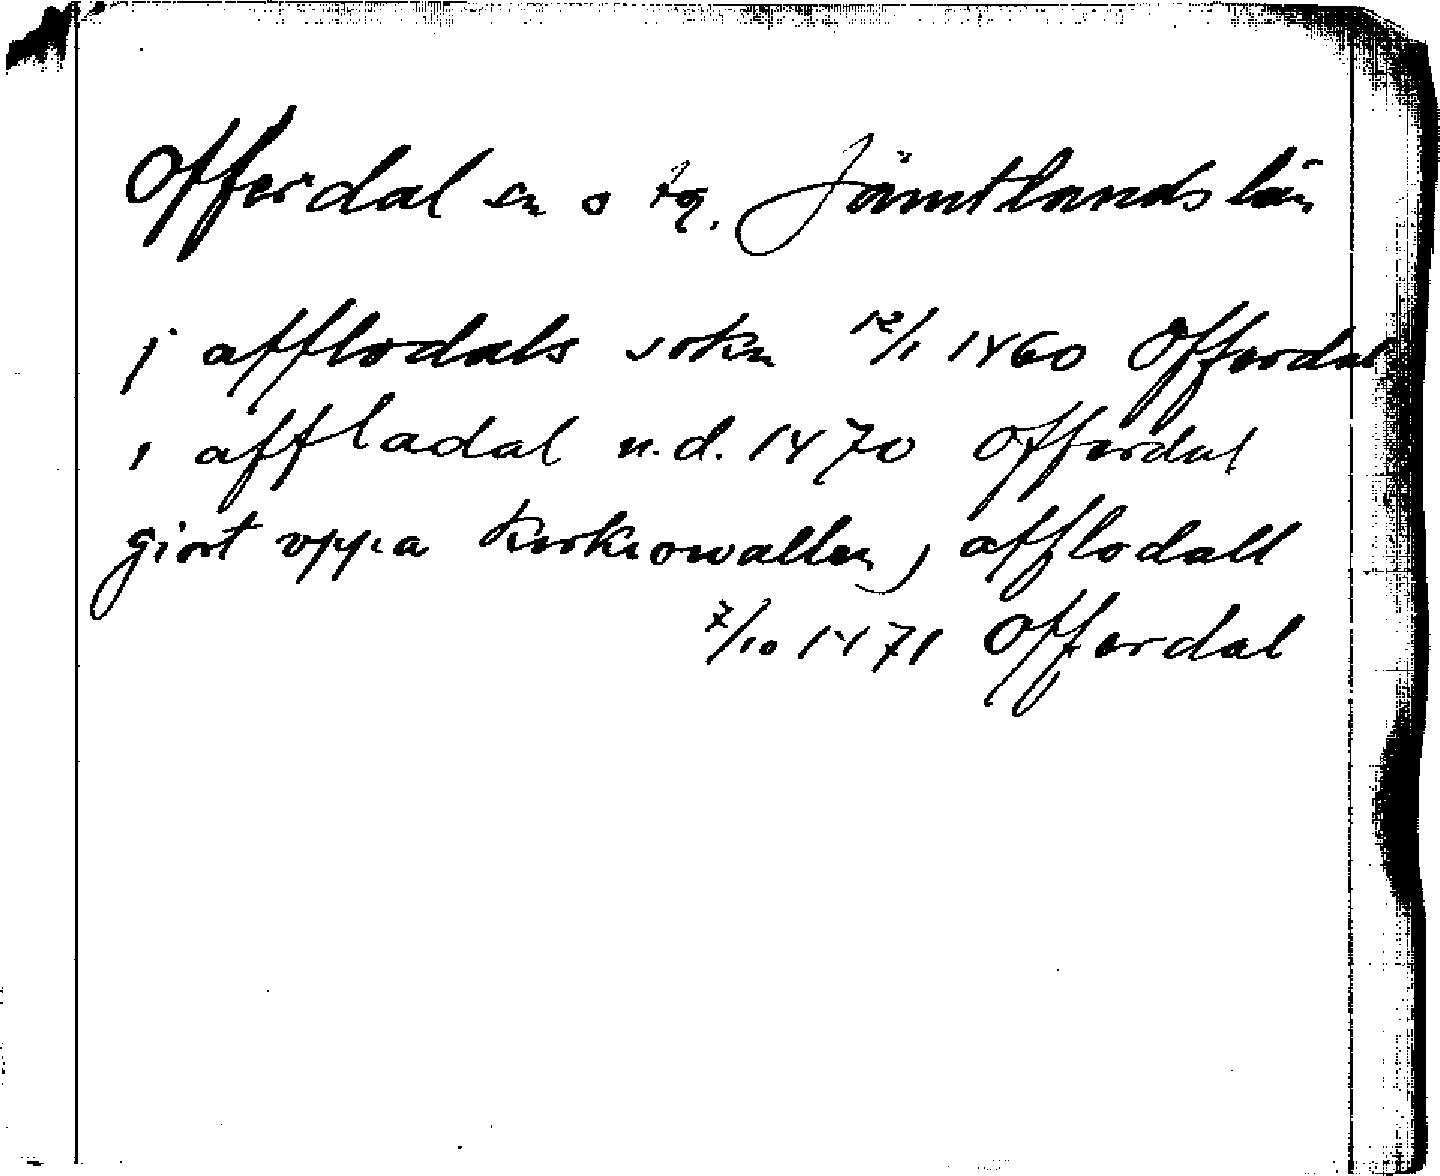 Offerdal sn o tg. Jämtlands län
j afflodals sokn 12/1 1460 Offerdal
i affladal u.d. 1470 Offerdal
giort vppa kirkiowallen j afflodall
7/10 1471 Offerdal